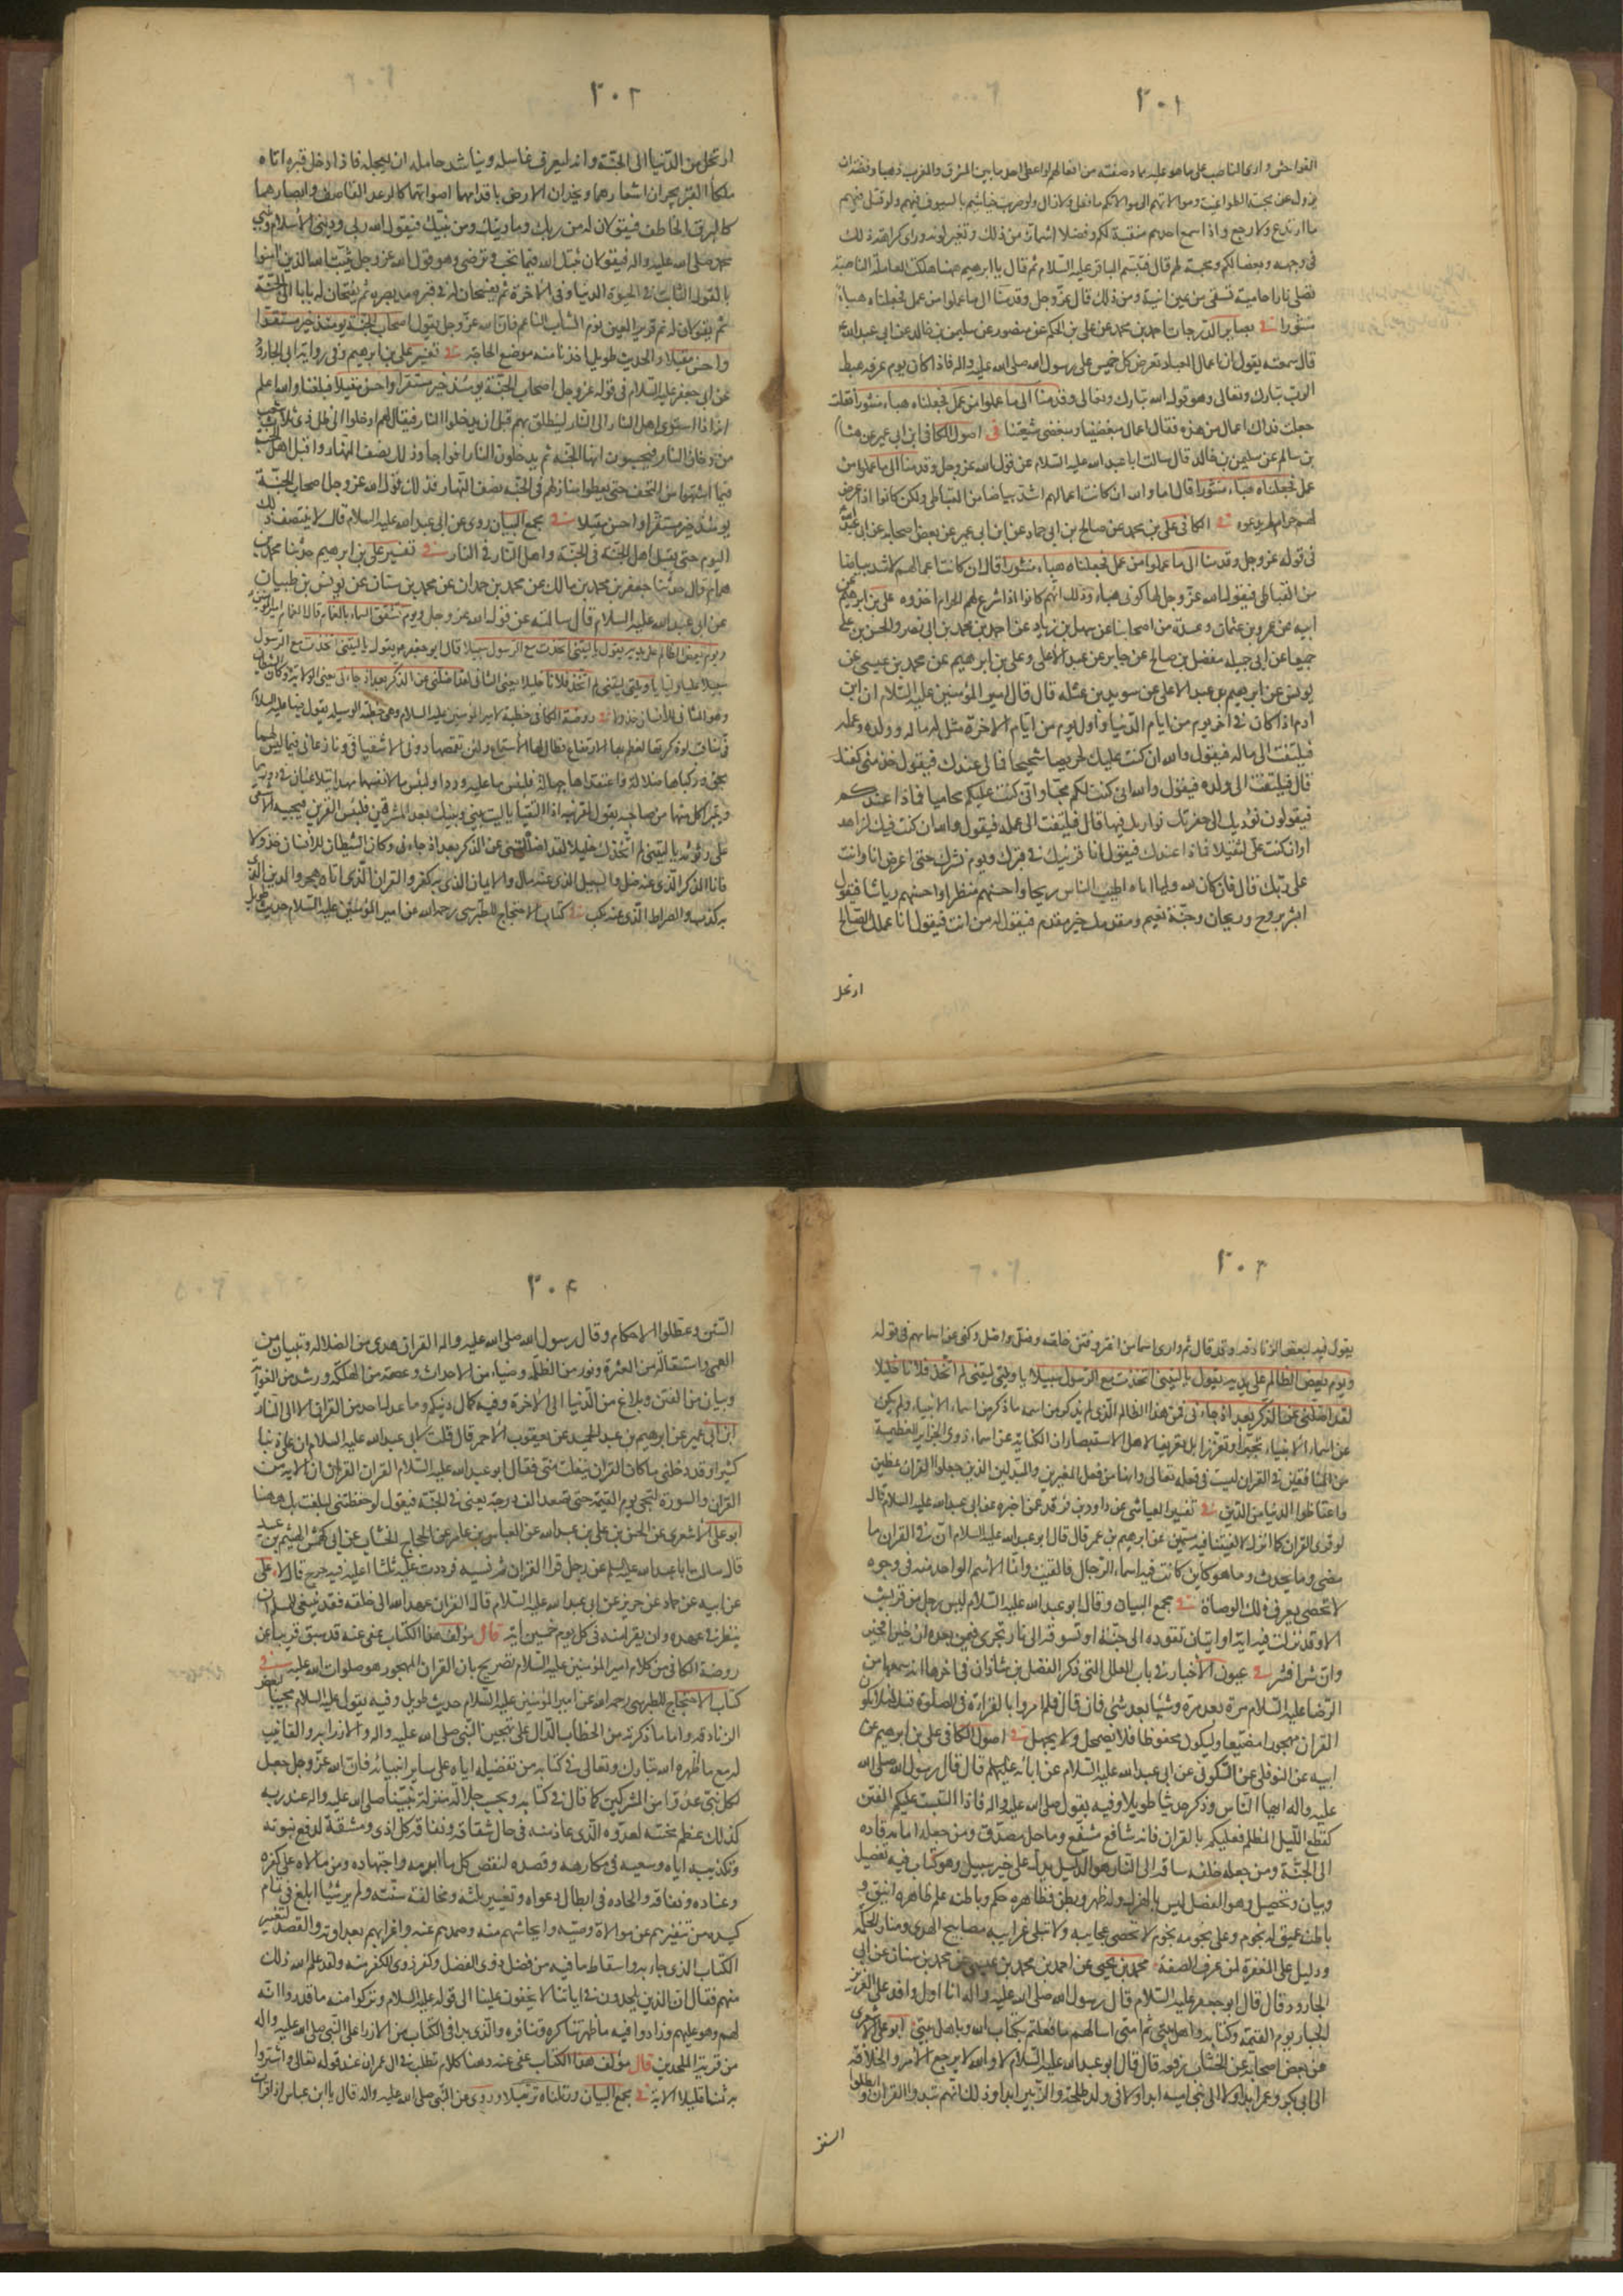 ٣٠١
الفواحش وارى الناصب على ما هو عليه مما وصفته من افعالهم لو اعطى احدهم ما بين المشرق والمغرب ذهبا وفضة ان
يزول عن محبة الطواغيت وموالاتهم الى موالاتكم ما فعل ولا زال ولو ضربت خياشيمه بالسيوف فيهم ولو قتل فيهم
ما ارتدع ولا رجع واذا سمع احدهم منقبة لكم وفضلا اشمأز من ذلك وتغير لونه ورأى كراهة ذلك
فى وجهه وبغضا لكم ومحبة لهم قال فتبسم الباقر عليه السلام ثم قال يا ابراهيم ههنا هلكت العاملة الناصبة
تصلى نارا حامية تسقى من عين انية ومن ذلك قال عز وجل وقدمنا الى ما عملوا من عمل فجعلناه هباء
منثورا فى بصاير الدرجات احمد بن محمد عن على بن الحكم عن منصور عن سليمن بن خالد عن ابى عبد الله ع
قال سمعته يقول ان اعمال العباد تعرض كل خميس على رسول الله صلى الله عليه واله فاذا كان يوم عرفه هبط
الرب تبارك وتعالى وهو قول الله تبارك وتعالى وقدمنا الى ما عملوا من عمل فجعلناه هباء منثورا فقلت
جعلت فداك اعمال من هذه فقال اعمال مبغضينا ومبغضى شيعتنا فى اصول الكافى ابن ابى عمير عن هشام
بن سالم عن سليمن بن خالد قال سالت ابا عبد الله عليه السلام عن قول الله عز وجل وقدمنا الى ما عملوا من
عمل فجعلناه هباء منثورا قال اما والله ان كانت اعمالهم اشد بياضا من القباطى ولكن كانوا اذا عرض
لهم حرام لم يدعوه فى الكافى على بن محمد عن صالح بن ابى حماد عن ابن ابى عمير عن بعض اصحابه عن ابى عبد الله
فى قوله عز وجل وقدمنا الى ما عملوا من عمل فجعلناه هباء منثورا قال ان كانت اعمالهم لاشد بياضا
من القباطى فيقول الله عز وجل لها كونى هباء وذلك انهم كانوا اذا شرع لهم الحرام اخذوه على بن ابراهيم عن
ابيه عن عمرو بن عثمان وعدة من اصحابنا عن سهل بن زياد عن احمد بن محمد بن ابى نصر والحسن بن على
جميعا عن ابى جميله مفضل بن صالح عن جابر عن عبد الاعلى وعلى بن ابراهيم عن محمد بن عيسى عن
يونس عن ابراهيم بن عبد الاعلى عن سويد بن غفله قال قال امير المؤمنين عليه السلام ان ابن
ادم اذا كان فى اخر يوم من ايام الدنيا واول يوم من ايام الاخرة مثل له ماله وولده وعمله
فيلتفت الى ماله فيقول والله ان كنت عليك لحريصا شحيحا فما لى عندك فيقول خذ منى كفنك
قال فيلتفت الى ولده فيقول والله انى كنت لكم محبا وانى كنت عليكم محاميا فماذا عندكم
فيقولون نؤديك الى حفرتك نواريك فيها قال فيلتفت الى عمله فيقول والله ان كنت فيك لزاهد
او ان كنت على لثقيلا فماذا عندك فيقول انا قرينك فى قبرك ويوم نشرك حتى اعرض انا وانت
على ربك قال فان كان لله وليا اتاه اطيب الناس ريحا واحسنهم منظرا واحسنهم رياشا فيقول
ابشر بروح وريحان وجنة نعيم ومقدمك خير مقدم فيقول له من انت فيقول انا عملك الصالح
ارتحل
٣٠٢
ارتحل من الدنيا الى الجنة وانه ليعرف غاسله ويناشد حامله ان يعجله فاذا ادخل قبره اتاه
ملكا القبر يجران اشعارهما ويخدان الارض باقدامهما اصواتهما كالرعد القاصف وابصارهما
كالبرق الخاطف فيقولان له من ربك وما دينك ومن نبيك فيقول الله ربى ودينى الاسلام ونبيى
محمد صلى الله عليه واله فيقولان ثبتك الله فيما تحب وترضى وهو قول الله عز وجل يثبت الله الذين امنوا
بالقول الثابت فى الحيوة الدنيا وفى الاخرة ثم يفسحان له فى قبره مد بصره ثم يفتحان له بابا الى الجنة
ثم يقولان له نم قرير العين نوم الشاب الناعم فان الله عز وجل يقول اصحاب الجنة يومئذ خير مستقرا
واحسن مقيلا والحديث طويل اخذنا منه موضع الحاجة فى تفسير على بن ابراهيم وفى رواية ابى الجارود
عن ابى جعفر عليه السلام فى قوله عز وجل اصحاب الجنة يومئذ خير مستقرا واحسن مقيلا فبلغنا والله اعلم
انه اذا استوى اهل النار الى النار لينطلق بهم قبل ان يدخلوا النار فيقال لهم ادخلوا الى ظل ذى ثلاث شعب
من دخان النار فيحسبون انها الجنة ثم يدخلون النار افواجا وذلك نصف النهار واقبل اهل الجنة
فيما اشتهوا من التحف حتى يعطوا منازلهم فى الجنة نصف النهار فذلك قول الله عز وجل اصحاب الجنة
يومئذ خير مستقرا واحسن مقيلا فى مجمع البيان روى عن ابى عبد الله عليه السلام قال لا ينتصف ذلك
اليوم حتى يقيل اهل الجنة فى الجنة واهل النار فى النار فى تفسير على بن ابراهيم حدثنا محمد بن
همام قال حدثنا جعفر بن محمد بن مالك عن محمد بن حمدان عن محمد بن سنان عن يونس بن ظبيان
عن ابى عبد الله عليه السلام قال سالته عن قول الله عز وجل ويوم تشقق السماء بالغمام قال الغمام امير المؤمنين
ويوم يعض الظالم على يديه يقول يا ليتنى اتخذت مع الرسول سبيلا قال ابو جعفر ع يقول يا ليتنى اتخذت مع الرسول
سبيلا عليا وليا يا ويلتى ليتنى لم اتخذ فلانا خليلا يعنى الثانى لقد اضلنى عن الذكر بعد اذ جاءنى يعنى الولاية وكان الشيطان
وهو الثانى للانسان خذولا فى روضة الكافى خطبة لامير المؤمنين عليه السلام وهى خطبة الوسيله يقول فيها عليه السلام
فى مناقب لو ذكرتها لعظم بها الارتفاع وطال لها الاستماع ولئن تقمصها دونى الاشقيان ونازعانى فيما ليس لهما
بحق وركباها ضلالة واعتقداها جهالة فلبئس ما عليه وردا ولبئس ما لانفسهما مهدا يتلاعنان فى دورهما
ويتبرأ كل منهما من صاحبه يقول لقرينه اذا التقيا يا ليت بينى وبينك بعد المشرقين فبئس القرين فيجيبه الاشقى
على رثوثه يا ليتنى لم اتخذك خليلا لقد اضللتنى عن الذكر بعد اذ جاءنى وكان الشيطان للانسان خذولا
فانا الذكر الذى عنه ضل والسبيل الذى عنه مال والايمان الذى به كفر والقران الذى اياه هجر والدين الذى
به كذب والصراط الذى عنه نكب فى كتاب الاحتجاج للطبرسى رحمه الله عن امير المؤمنين عليه السلام حديث طويل
٣٠٣
يقول فيه لبعض الزنادقه وقد قال ثم وارى اسماء من اغتر وفتن خلقه وضل واضل وكنى عن اسمائهم فى قوله
ويوم يعض الظالم على يديه يقول يا ليتنى اتخذت مع الرسول سبيلا يا ويلتى ليتنى لم اتخذ فلانا خليلا
لقد اضلنى عن الذكر بعد اذ جاءنى فمن هذا الظالم الذى لم يذكر من اسمه ما ذكر من اسماء الانبياء ولم يكن
عن اسماء الانبياء تجبرا وتعززا بل تعريفا لاهل الاستبصار ان الكناية عن اسماء ذوى الجراير العظيمة
من المنافقين فى القران ليست من فعله تعالى وانها من فعل المغيرين والمبدلين الذين جعلوا القران عضين
واعتاضوا الدنيا من الدين فى تفسير العياشى عن داود بن فرقد عمن اخبره عن ابى عبد الله عليه السلام قال
لو قرى القران كما انزل لالفيتنا فيه مسمين عن ابراهيم بن عمر قال قال ابو عبد الله عليه السلام ان فى القران ما
مضى وما يحدث وما هو كاين كانت فيه اسماء الرجال فالقيت وانما الاسم الواحد منه فى وجوه
لا تحصى يعرف ذلك الوصاة فى مجمع البيان وقال ابو عبد الله عليه السلام ليس رجل من قريش
الا وقد نزلت فيه اية او ايتان تقوده الى جنة او تسوقه الى نار تجرى فيمن بعده ان خيرا فخير
وان شرا فشر فى عيون الاخبار فى باب العلل التى ذكر الفضل بن شاذان فى اخرها انه سمعها من
الرضا عليه السلام مرة بعد مرة وشيئا بعد شئ فان قال فلم امروا بالقراءة فى الصلوة قيل لئلا يكون
القران مهجورا مضيعا وليكون محفوظا فلا يضمحل ولا يجهل فى اصول الكافى على بن ابراهيم عن
ابيه عن النوفلى عن السكونى عن ابى عبد الله عليه السلام عن ابائه عليهم قال قال رسول الله صلى الله
عليه واله ايها الناس وذكر حديثا طويلا وفيه يقول صلى الله عليه واله فاذا التبست عليكم الفتن
كقطع الليل المظلم فعليكم بالقران فانه شافع مشفع وماحل مصدق ومن جعله امامه قاده
الى الجنة ومن جعله خلفه ساقه الى النار هو الدليل يدل على خير سبيل وهو كتاب فيه تفصيل
وبيان وتحصيل وهو الفصل ليس بالهزل وله ظهر وبطن فظاهره حكم وباطنه علم ظاهره انيق و
باطنه عميق له نجوم وعلى نجومه نجوم لا تحصى عجايبه ولا تبلى غرايبه مصابيح الهدى ومنار الحكمة
ودليل على المغفرة لمن عرف الصفة محمد بن يحيى عن احمد بن محمد بن عيسى عن محمد بن سنان عن ابى
الجارود قال قال ابو جعفر عليه السلام قال رسول الله صلى الله عليه واله انا اول وافد على العزيز
الجبار يوم القيمة وكتابه واهل بيتى ثم امتى ثم اسالهم ما فعلتم بكتاب الله وباهل بيتى ابو على الاشعرى
عن بعض اصحابه عن الخشاب رفعه قال قال ابو عبد الله عليه السلام لا والله لا يرجع الامر والخلافة
الى ابى بكر وعمر ابدا ولا الى بنى امية ابدا ولا فى ولد طلحة والزبير ابدا وذلك انهم نبذوا القران وابطلوا
السنن
٣٠٤
السنن وعطلوا الاحكام وقال رسول الله صلى الله عليه واله القران هدى من الضلالة وتبيان من
العمى واستقالة من العثرة ونور من الظلمة وضياء من الاحداث وعصمة من الهلكة ورشد من الغواية
وبيان من الفتن وبلاغ من الدنيا الى الاخرة وفيه كمال دينكم وما عدل احد من القران الا الى النار
ابن ابى عمير عن ابراهيم بن عبد الحميد عن يعقوب الاحمر قال قلت لابى عبد الله عليه السلام ان على دينا
كثيرا وقد دخلنى ما كان القران يتفلت منى فقال ابو عبد الله عليه السلام القران القران ان الاية من
القران والسورة لتجئ يوم القيمة حتى تصعد الف درجة يعنى فى الجنة فيقول لو حفظتنى لبلغت بك ههنا
ابو على الاشعرى عن الحسن بن على بن عبد الله عن العباس بن عامر عن الحجاج الخشاب عن ابى كهمش الهيثم بن عبيد
قال سالت ابا عبد الله عليه السلم عن رجل قرأ القران ثم نسيه فرددت عليه ثلثا اعليه فيه حرج قال لا على
عن ابيه عن حماد عن حريز عن ابى عبد الله عليه السلام قال القران عهد الله الى خلقه فقد ينبغى للمسلم ان
ينظر فى عهده وان يقرا منه فى كل يوم خمسين اية قال مؤلف هذا الكتاب عفى عنه قد سبق قريبا عن
روضة الكافى من كلام امير المؤمنين عليه السلام تصريح بان القران المهجور هو صلوات الله عليه فى
كتاب الاحتجاج للطبرسى رحمه الله عن امير المؤمنين عليه السلام حديث طويل وفيه يقول عليه السلام مجيبا لبعض
الزنادقه واما ما ذكرته من الخطاب الدال على تهجين النبى صلى الله عليه واله والازراء به والتانيب
له مع ما اظهره الله تبارك وتعالى فى كتابه من تفضيله اياه على ساير انبيائه فان الله عز وجل جعل
لكل نبى عدوا من المشركين كما قال فى كتابه وبحسب جلالة منزلة نبينا صلى الله عليه واله عند ربه
كذلك عظم محنته لعدوه الذى عاد منه فى حال شقاقه ونفاقه كل اذى ومشقة لدفع نبوته
وتكذيبه اياه وسعيه فى مكارهه وقصده لنقض كل ما ابرمه واجتهاده ومن مالاه على كفره
وعناده ونفاقه والحاده فى ابطال دعواه وتغيير ملته ومخالفة سنته ولم ير شيئا ابلغ فى تمام
كيده من تنفيرهم عن موالاة وصيه وايحاشهم منه وصدهم عنه واغرائهم بعداوته والقصد لتغيير
الكتاب الذى جاء به واسقاط ما فيه من فضل ذوى الفضل وكفر ذوى الكفر منه ولقد علم الله ذلك
منهم فقال ان الذين يلحدون فى اياتنا لا يخفون علينا الى قوله عليه السلام وتركوا منه ما قدروا انه
لهم وهو عليهم وزادوا فيه ما ظهر تناكره وتنافره والذى بدا فى الكتاب من الازراء على النبى صلى الله عليه واله
من فرية الملحدين قال مؤلف هذا الكتاب عفى عنه وهنا كلام تطلب فى ال عمران عند قوله تعالى واشتروا
به ثمنا قليلا الاية فى مجمع البيان ورتلناه ترتيلا وروى عن النبى صلى الله عليه واله قال يا ابن عباس اذا قرات